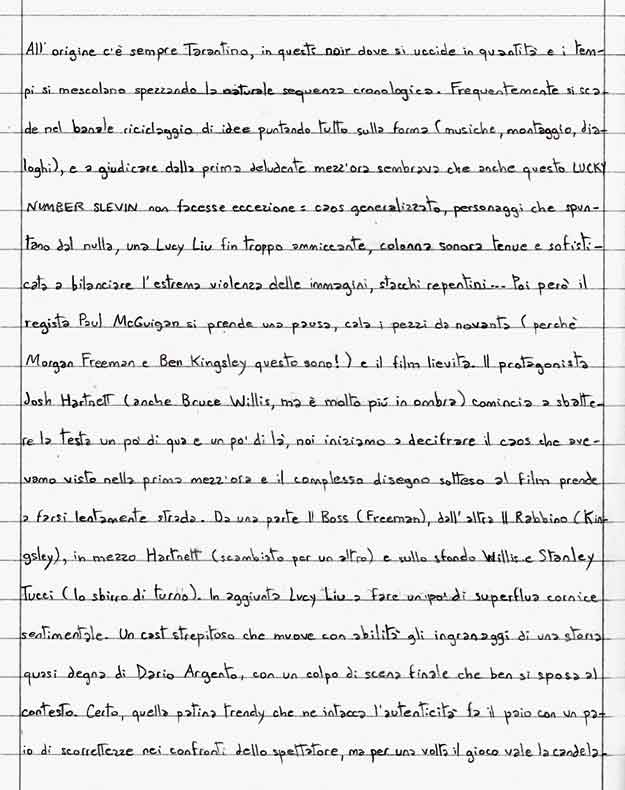 All' origine c'è sempre Tarantino, in questi noir dove si uccide in quantità e i tem-
pi si mescolano spezzando la naturale sequenza cronologica. Frequentemente si sca-
de nel banale riciclaggio di idee puntando tutto sulla forma (musiche, montaggio, dia-
loghi), e a giudicare dalla prima deludente mezz'ora sembrava che anche questo LUCKY
NUMBER SLEVIN non facesse eccezione: caos generalizzato, personaggi che spun-
tano dal nulla, una Lucy Liu fin troppo ammiccante, colonna sonora tenue e sofisti-
cata a bilanciare l'estrema violenza delle immagini, stacchi repentini... Poi però il
regista Paul McGuigan si prende una pausa, cala i pezzi da novanta (perchè
Morgan Freeman e Ben Kingsley questo sono!) e il film lievita. Il protagonista
Josh Hartnett (anche Bruce Willis, ma è molto più in ombra) comincia a sbatte-
re la testa un po' di qua e un po' di là, noi iniziamo a decifrare il caos che ave-
vamo visto nella prima mezz'ora e il complesso disegno sotteso al film prende
a farsi lentamente strada. Da una parte Il Boss (Freeman), dall'altra Il Rabbino (Kin-
gsley), in mezzo Hartnett (scambiato per un altro) e sullo sfondo Willis e Stanley
Tucci (lo sbirro di turno). In aggiunta Lucy Liu a fare un po' di superflua cornice
sentimentale. Un cast strepitoso che muove con abilità gli ingranaggi di una storia
quasi degna di Dario Argento, con un colpo di scena finale che ben si sposa al
contesto. Certo, quella patina trendy che ne intacca l'autenticità fa il paio con un pa-
io di scorrettezze nei confronti dello spettatore, ma per una volta il gioco vale la candela.